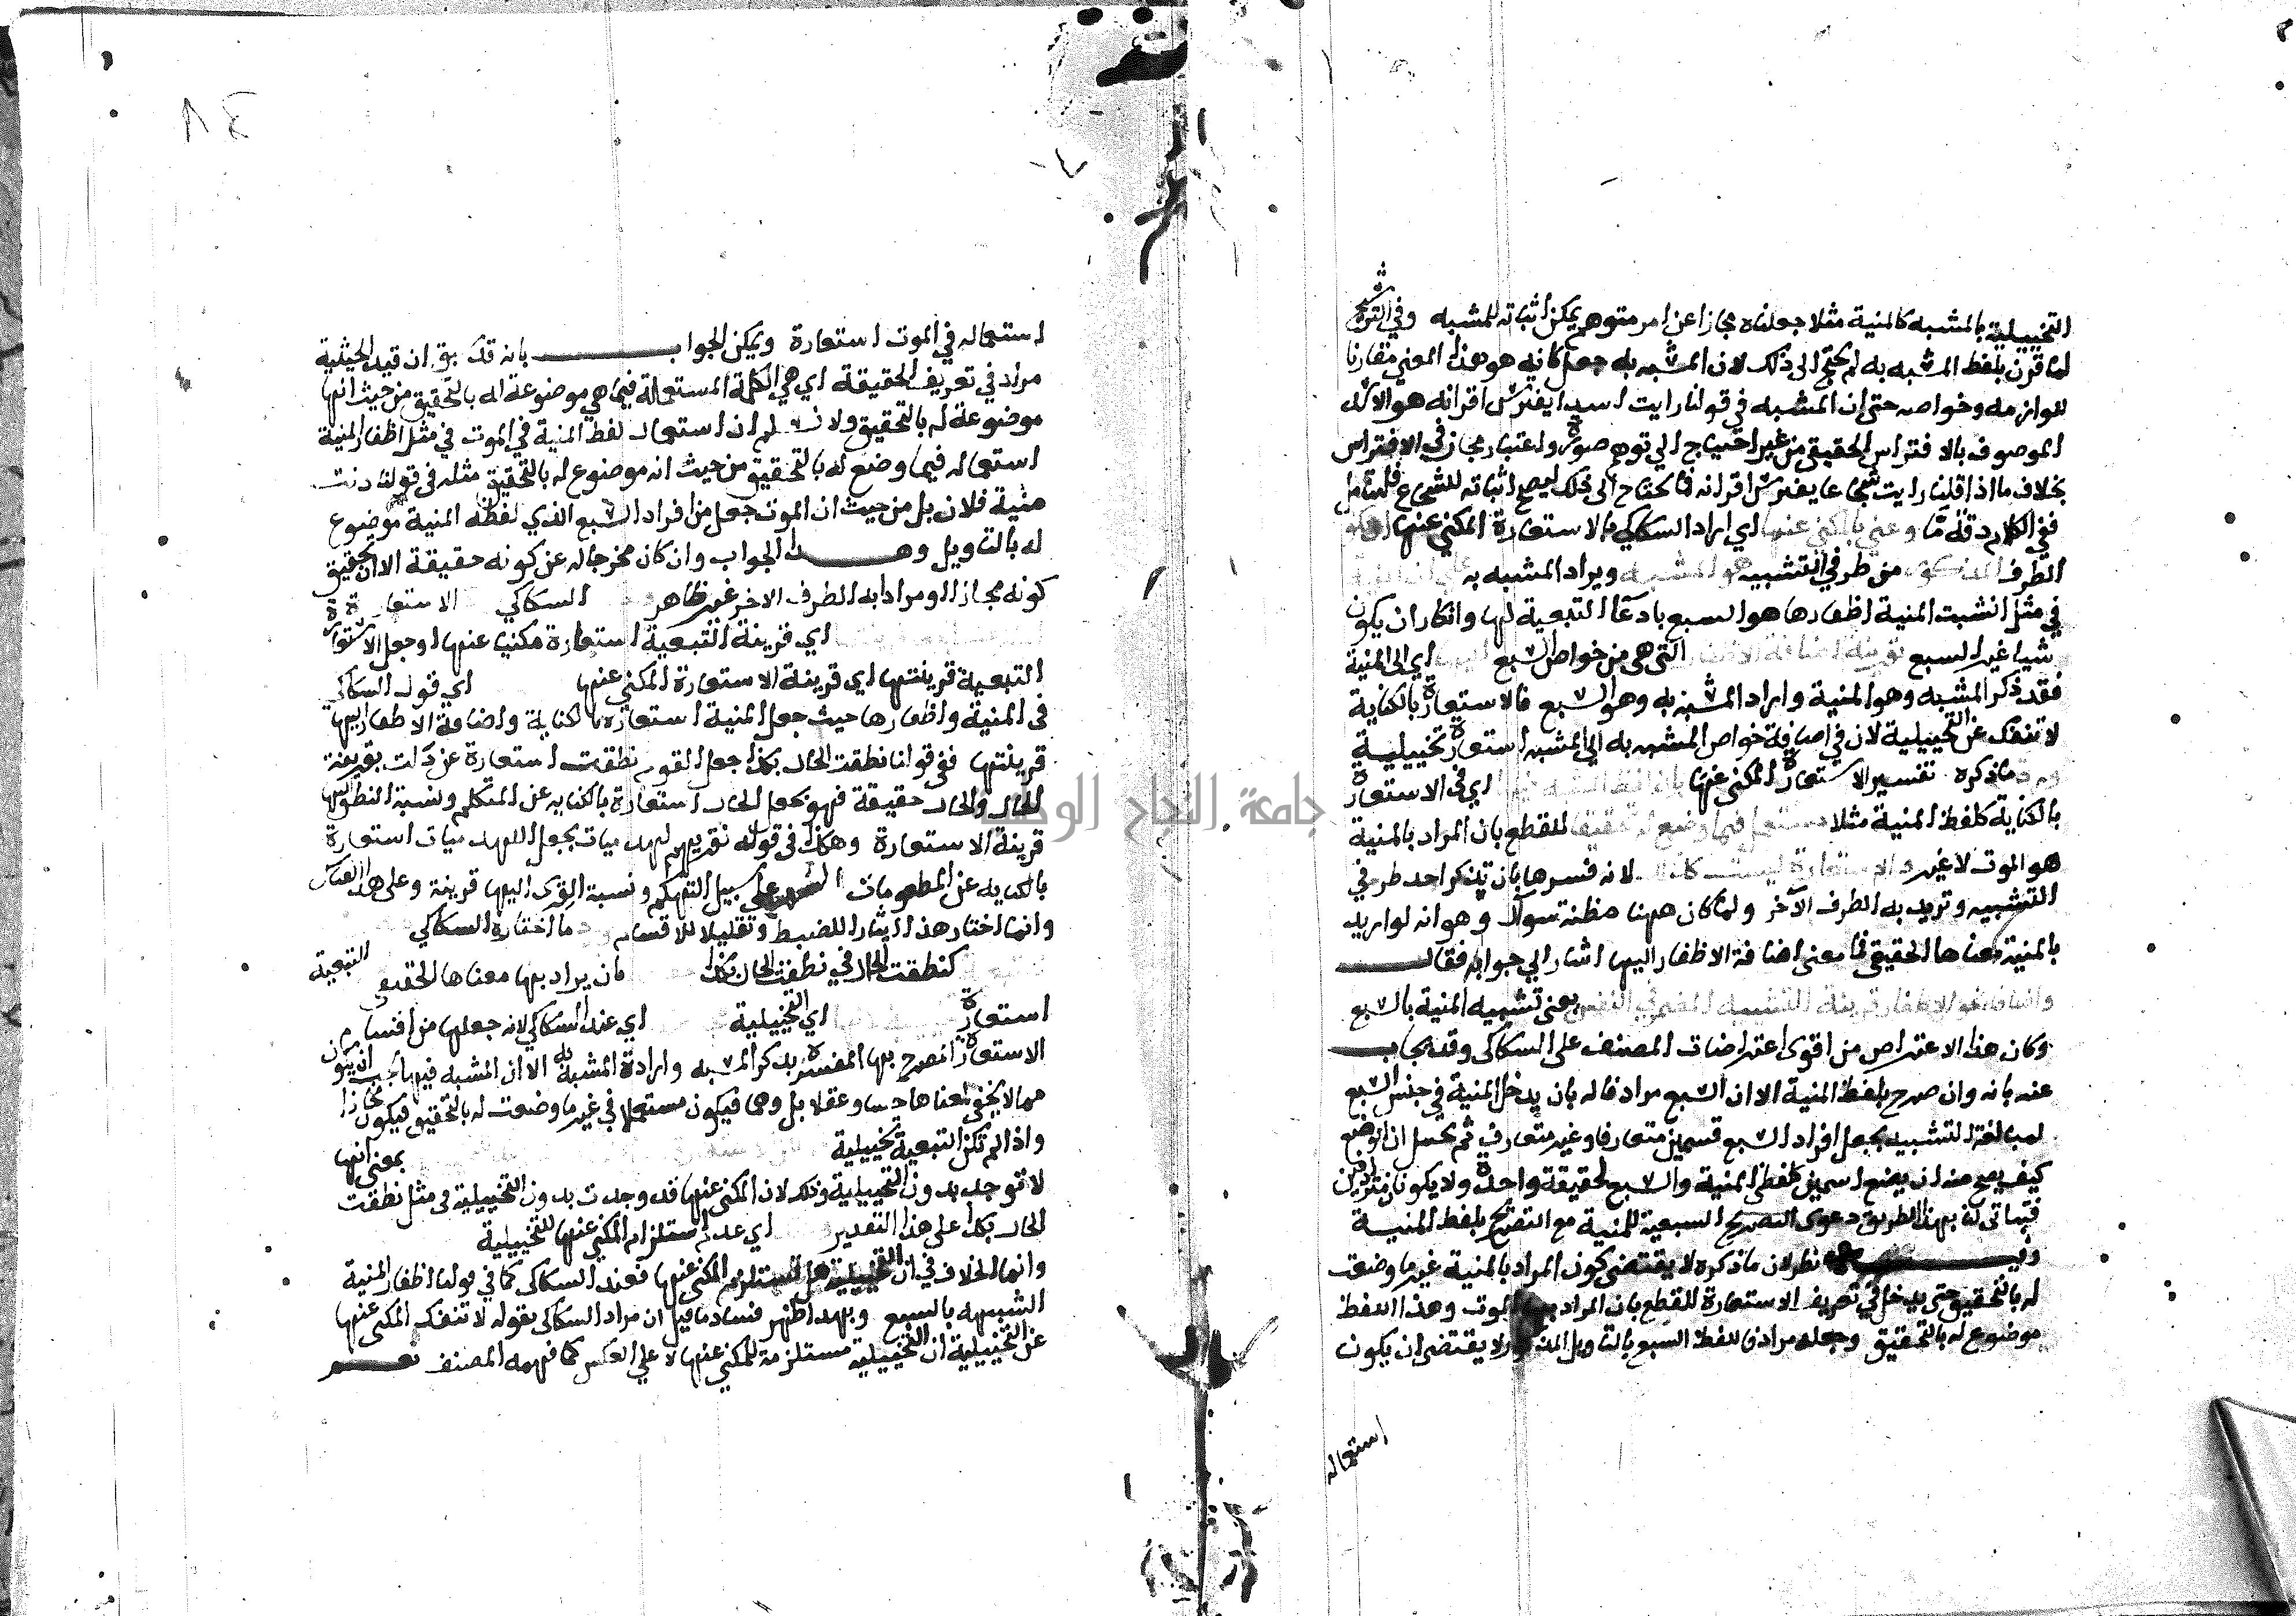 التخييلية بالمشبه كالمنية مثلا جعلناه مجازا عن امر متوهم يمكن اثباته للمشبه وفي الترشيح
لما قرن بلفظ المشبه به لم يحتج الى ذلك لان المشبه به جعل كانه هو هذا المعنى مقارنا
للوازمه وخواصه حتى ان المشبه به في قولنا رايت اسدا يفترس اقرانه هو الاسد
الموصوف بالافتراس الحقيقي من غير احتياج الى توهم صورة واعتبار مجاز في الافتراس
بخلاف ما اذا قلنا رايت شجاعا يفترس اقرانه فانا نحتاج الى ذلك ليصح اثباته للشجاع فليتامل
ففي الكلام دقة ما وعني بالمكني عنها اي اراد السكاكي بالاستعارة المكني عنها ان يكون
الطرف المذكور من طرفي التشبيه هو المشبه ويراد المشبه به
في مثل انشبت المنية اظفارها هو السبع بادعا السبعية لها وانكار ان يكون
شيا غير السبع بقرينة اضافة الاظفار التي هي من خواص السبع اليها اي الى المنية
فقد ذكر المشبه وهو المنية واراد المشبه به وهو السبع فالاستعارة بالكناية
لا تنفك عن التخييلية لان في اضافة خواص المشبه به الى المشبه استعارة تخييلية
ورد ما ذكره تفسير الاستعارة المكني عنها بان لفظ المشبه فيها اي في الاستعارة
بالكناية كلفظ المنية مثلا مستعمل فيما وضع له تحقيقا للقطع بان المراد بالمنية
هو الموت لا غير والاستعارة ليست كذلك لانه فسرها بان تذكر احد طرفي
التشبيه وتريد به الطرف الآخر ولما كان ههنا مظنة سوآل وهو انه لو اريد
بالمنية معناها الحقيقي فما معنى اضافة الاظفار اليها اشار الى جوابه فقال
واضافة نحو الاظفار قرينة التشبيه المضمر في النفس يعني تشبيه المنية بالسبع
وكان هذا الاعتراض من اقوى اعتراضات المصنف على السكاكي وقد يجاب
عنه بانه وان صرح بلفظ المنية الا ان السبع مرادفا له بان يدخل المنية في جنس السبع
لمبالغة التشبيه بجعل افراد السبع قسمين متعارفا وغير متعارف ثم يخيل ان الواضع
كيف يصح منه ان يضع اسمين كلفظي المنية والسبع لحقيقة واحدة ولا يكونان مترادفين
فيتاتى لنا بهذا الطريق دعوى السبعية للمنية مع التصريح بلفظ المنية
وفيه نظر لان ما ذكره لا يقتضي كون المراد بالمنية غير ما وضعت
له بالتحقيق حتى يدخل في تعريف الاستعارة للقطع بان المراد بها الموت وهذا اللفظ
موضوع له بالتحقيق وجعله مرادفا للفظ السبع بالتاويل المذكور لا يقتضي ان يكون
استعماله
استعماله في الموت استعارة ويمكن الجواب بانه قد سبق ان قيد الحيثية
مراد في تعريف الحقيقة اي هي الكلمة المستعملة فيما هي موضوعة له بالتحقيق من حيث انها
موضوعة له بالتحقيق ولا نسلم ان استعمال لفظ المنية في الموت في مثل اظفار المنية
استعماله فيما وضع له بالتحقيق من حيث انه موضوع له بالتحقيق مثله في قولنا دنت
منية فلان بل من حيث ان الموت جعل من افراد السبع الذي لفظه المنية موضوع
له بالتاويل وهذا الجواب وان كان مخرجا له عن كونه حقيقة الا ان تحقيق
كونه مجازا ومرادا به الطرف الاخر غير ظاهر السكاكي الاستعارة
اي قرينة التبعية استعارة مكنيا عنها وجعل الاستعارة
التبعية قرينتها اي قرينة الاستعارة المكني عنها اي قول السكاكي
في المنية واظفارها حيث جعل المنية استعارة بالكناية واضافة الاظفار اليها
قرينتها ففي قولنا نطقت الحال بكذا جعل القوم نطقت استعارة عن دلت بقرينة
الحال والحال حقيقة فهو يجعل الحال استعارة بالكناية عن المتكلم ونسبة النطق اليها
قرينة الاستعارة وهكذا في قوله نقريهم لهذميات بجعل اللهذميات استعارة
بالكناية عن المطعومات الشهية على سبيل التهكم ونسبة القرى اليها قرينة وعلى هذا القياس
وانما اختار هذا ايثارا للضبط وتقليلا للاقسام ورد ما اختاره السكاكي
التبعية كنطقت الحال في نطقت الحال بكذا بان يراد بها معناها الحقيقي
استعارة اي التخييلية اي عند السكاكي لانه جعلها من اقسام
الاستعارة المصرح بها المفسرة بذكر المشبه به وارادة المشبه الا ان المشبه فيها يجب ان يكون
مما لا يحقق لمعناها حسا وعقلا بل وهما فيكون مستعملا في غير ما وضعت له بالتحقيق فيكون مجازا
واذا لم تكن التبعية تخييلية بمعنى انها
لا توجد بدون التخييلية وذلك لان المكني عنها قد وجدت بدون التخييلية في مثل نطقت
الحال بكذا على هذا التقدير اي عدم استلزام المكني عنها للتخييلية
وانما الخلاف في ان التخييلية هل تستلزم المكني عنها فعند السكاكي كما في قولنا اظفار المنية
الشبيهة بالسبع وبهذا ظهر فساد ما قيل ان مراد السكاكي بقوله لا تنفك المكني عنها
عن التخييلية ان التخييلية مستلزمة للمكني عنها لا على العكس كما فهمه المصنف نعم
جامعة النجاح الوطنية